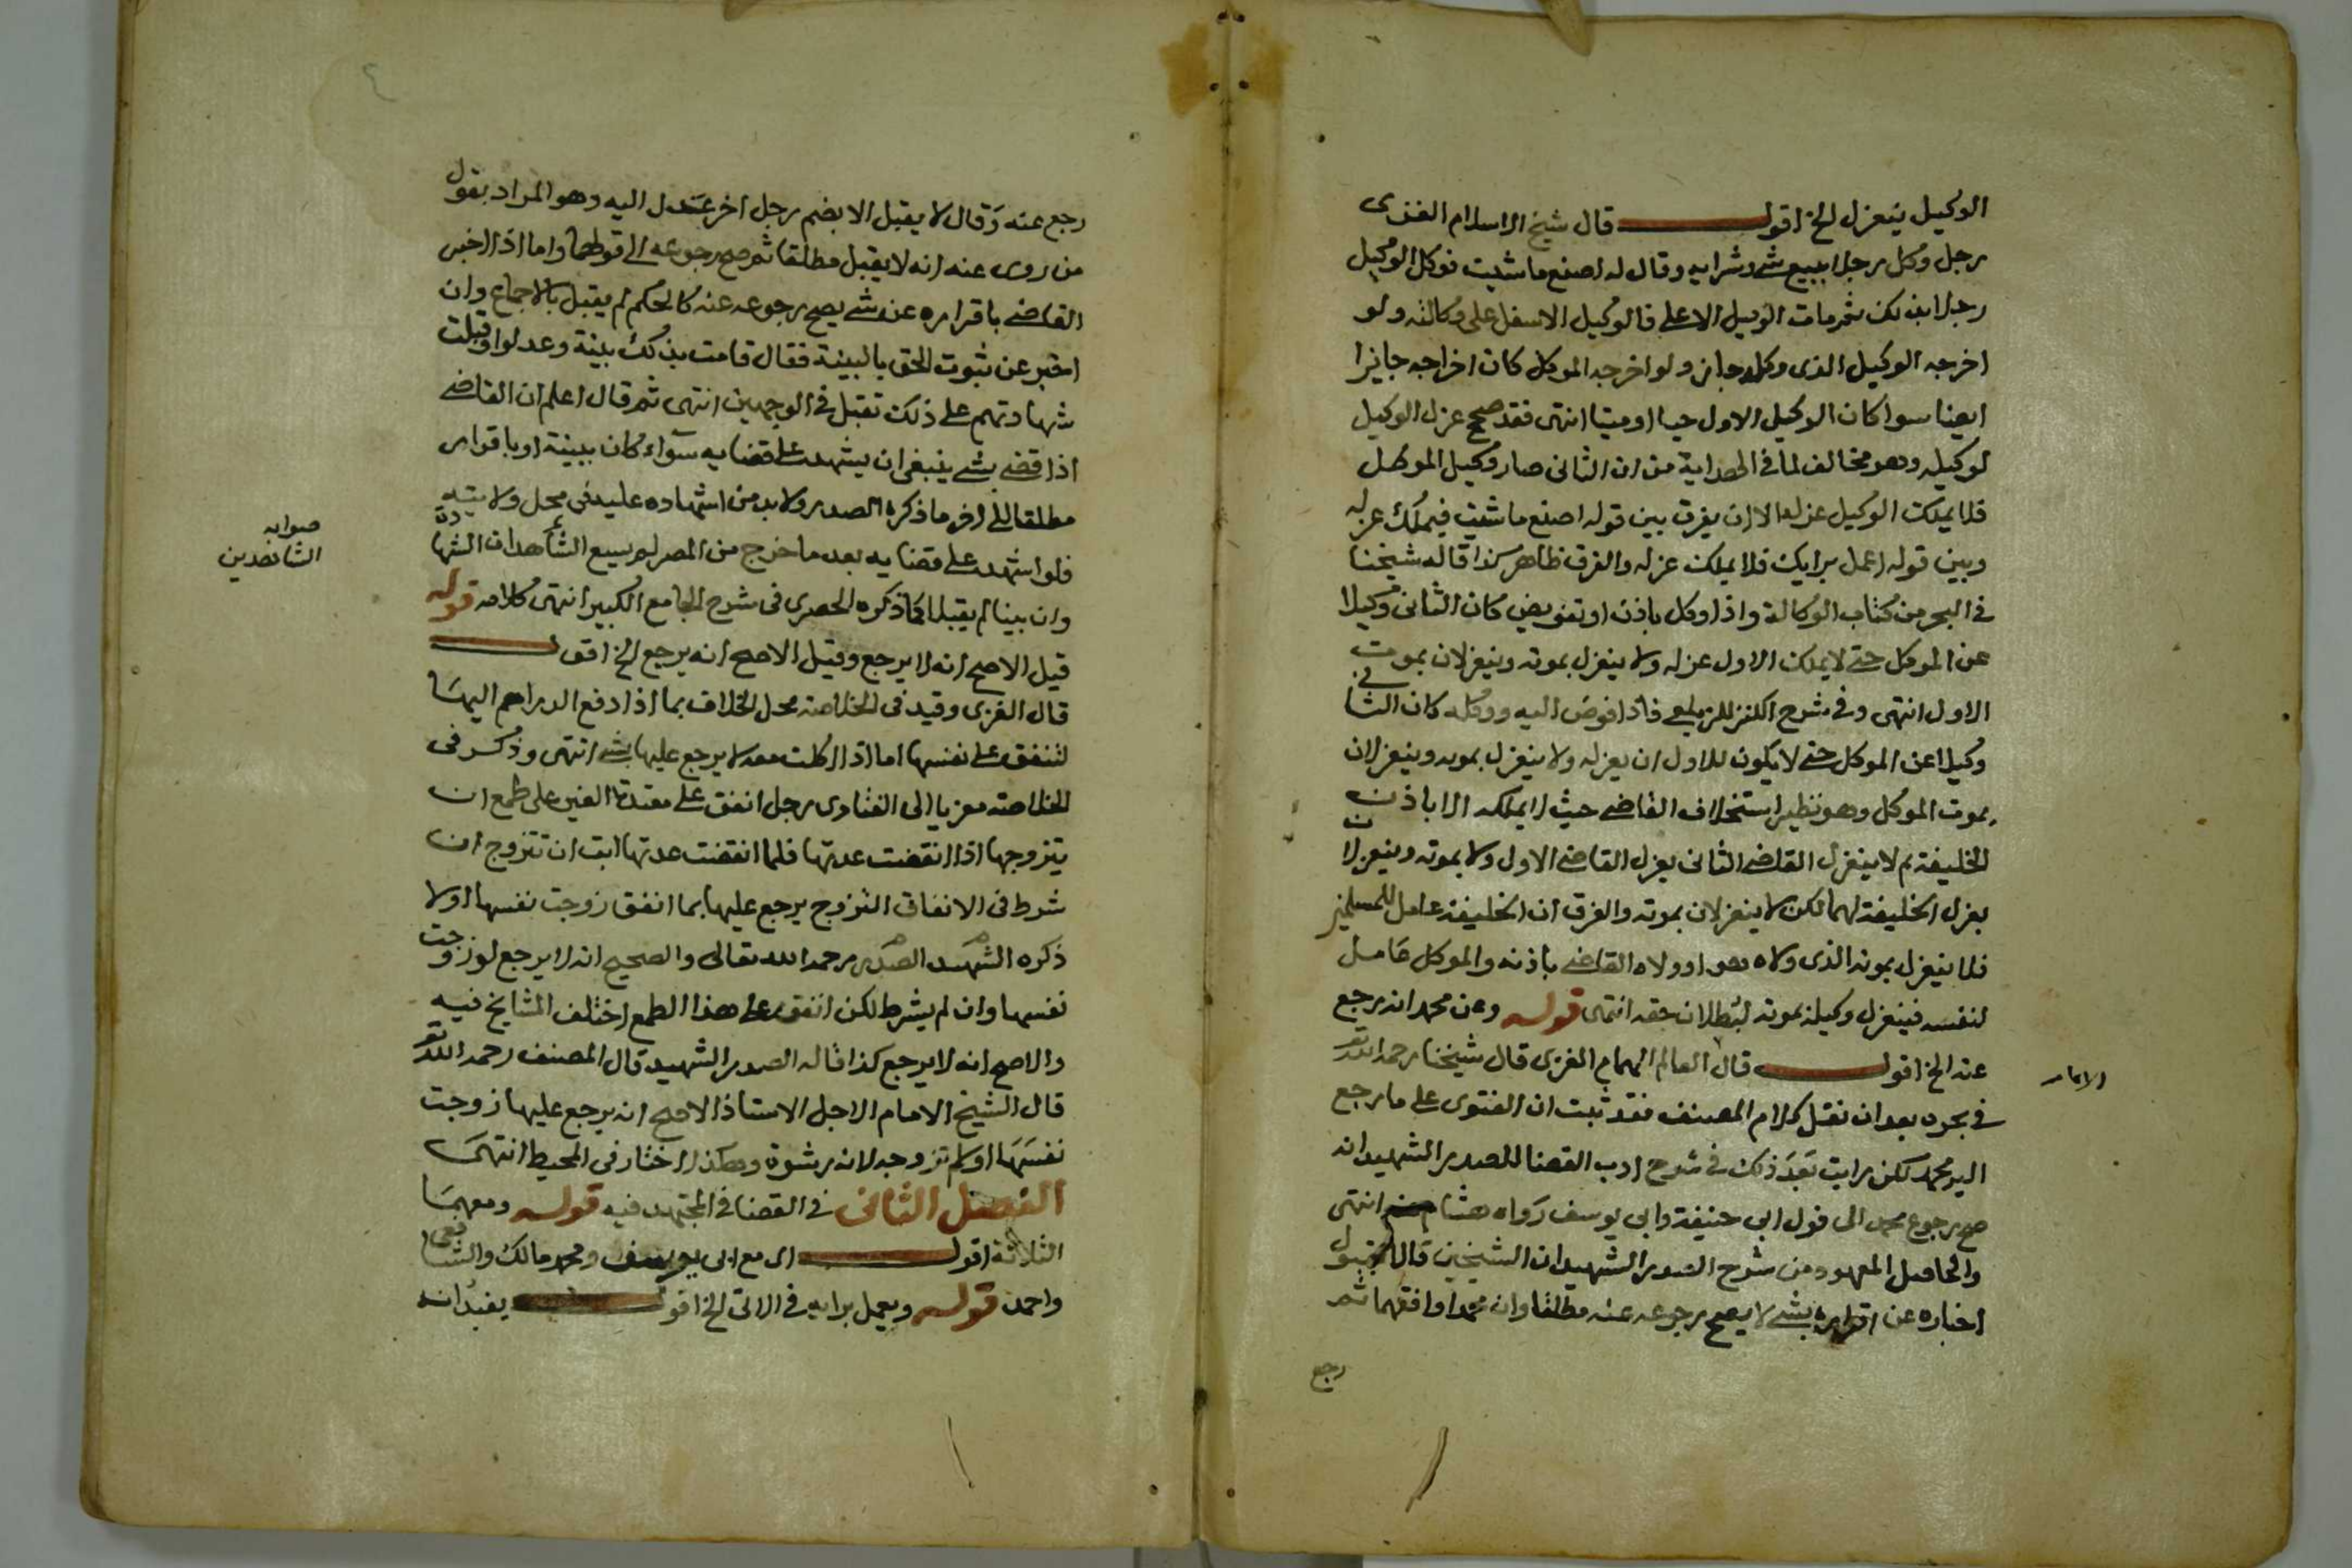 الوكيل ينعزل الخ اقول قال شيخ الاسلام الغزى
رجل وكل رجلا ببيع شي وشرايه وقال له اصنع ما شيت فوكل الوكيل
رجلا بذلك ثم مات الوكيل الاعلى فالوكيل الاسفل على وكالته ولو
اخرجه الوكيل الذى وكله جاز ولو اخرجه الموكل كان اخراجه جايزا
ايضا سوا كان الوكيل الاول حيا او ميتا انتهى فقد صحح عزل الوكيل
لوكيله وهو مخالف لما فى الهداية من ان الثانى صار وكيل الموكل
فلا يملك الوكيل عزله الا ان يفرق بين قوله اصنع ما شيت فيملك عزله
وبين قوله اعمل برايك فلا يملك عزله والفرق ظاهر كذا قاله شيخنا
فى البحر من كتاب الوكالة واذا وكل باذن او تفويض كان الثانى وكيلا
عن الموكل حتى لا يملك الاول عزله ولا ينعزل بموته وينعزلان بموت
الاول انتهى وفى شرح الكنز للزيلعى فاذا فوض اليه ووكله كان الثانى
وكيلا عن الموكل حتى لا يكون للاول ان يعزله ولا ينعزل بموته وينعزلان
بموت الموكل وهو نظير استخلاف القاضى حيث لا يملكه الا باذن
الخليفة ثم لا ينعزل القاضى الثانى بعزل القاضى الاول ولا بموته وينعزلان
بعزل الخليفة لهما لكن لا ينعزلان بموته والفرق ان الخليفة عامل للمسلمين
فلا ينعزل بموته الذى ولاه هو او ولاه القاضى باذنه والموكل عامل
لنفسه فينعزل وكيله بموته لبطلان حقه انتهى قوله وعن محمد انه رجع
عنه الخ اقول قال العالم الهمام الغزى قال شيخنا رحمه الله تع
الامام
فى بحره بعد ان نقل كلام المصنف فقد ثبت ان الفتوى على ما رجع
اليه محمد لكن رايت بعد ذلك فى شرح ادب القضا للصدر الشهيد انه
صح رجوع محمد الى قول ابى حنيفة وابى يوسف رواه هشام عنه انتهى
والحاصل المعهود من شرح الصدر الشهيد ان الشيخين قالا بقبول
اخباره عن اقراره بشي لا يصح رجوعه عنه مطلقا وان محمدا وافقهما ثم
رجع
رجع عنه وقال لا يقبل الا بضم رجل اخر عدل اليه وهو المراد بقول
من روى عنه انه لا يقبل مطلقا ثم صح رجوعه الى قولهما واما اذا اخبر
القاضى باقراره عن شي يصح رجوعه عنه كالحكم لم يقبل بالاجماع وان
اخبر عن ثبوت الحق بالبينة فقال قامت بذلك بينة وعدلوا وقبلت
شهادتهم على ذلك تقبل فى الوجهين انتهى ثم قال اعلم ان القاضى
اذا قضى بشي ينبغى ان يشهد على قضايه سواء كان ببينة او باقرار
مطلقا الى اخر ما ذكره الصدر ولا بد من اشهاده عليه فى محل ولايته
فلو اشهد على قضايه بعد ما خرج من المصر لم يسع الشاهدان الشهادة
صوابه
الشاهدين
وان بينا لم يقبلا كما ذكره الحصرى فى شرح الجامع الكبير انتهى كلامه قوله
قيل الاصح انه لا يرجع وقيل الاصح انه يرجع الخ اقول
قال الغزى وقيد فى الخلاصة محل الخلاف بما اذا دفع الدراهم اليها
لتنفق على نفسها اما اذا اكلت معه لا يرجع عليها بشي انتهى وذكر فى
الخلاصة معزيا الى الفتاوى رجل انفق على معتدة الغير على طمع ان
يتزوجها اذا انقضت عدتها فلما انقضت عدتها ابت ان تتزوج ان
شرط فى الانفاق التزوج يرجع عليها بما انفق زوجت نفسها اولا
ذكره الشهيد الصدر رحمه الله تعالى والصحيح انه لا يرجع لو زوجت
نفسها وان لم يشرط لكن انفق على هذا الطمع اختلف المشايخ فيه
والاصح انه لا يرجع كذا قاله الصدر الشهيد قال المصنف رحمه الله تع
قال الشيخ الامام الاجل الاستاذ الاصح انه يرجع عليها زوجت
نفسها او لم تزوجه لانه رشوة وهكذا اختار فى المحيط انتهى
الفصل الثانى فى القضا فى المجتهد فيه قوله ومعهما
الثلاثة اقول اى مع ابى يوسف ومحمد مالك والشافعى
واحمد قوله ويعمل برايه فى الاتى الخ اقول يفيد انه